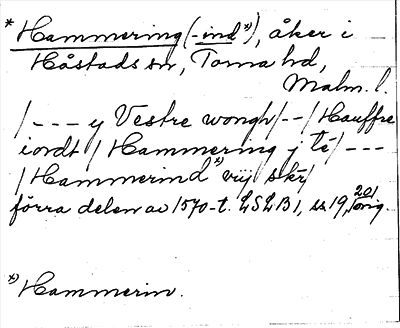 * Hammering (-ind *)), åker i
Håstads sn, Torna hd,
Malm. l.
/ --- y Vestre wongh / -- / Hauffre
iordt / Hammering j té / ---
/ Hammerind *) vij skr /
förra delen av 1570-t. LSLB 1, ss 19, 20 / orig.
*) Hammerin.